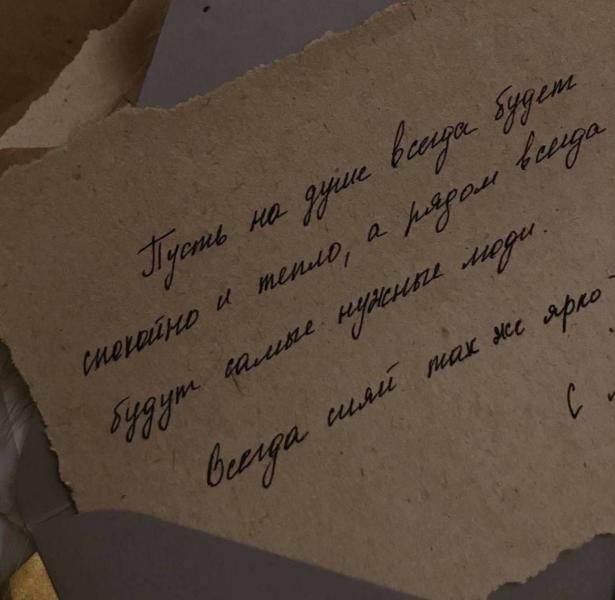 Пусть на душе всегда будет
спокойно и тепло, а рядом всегда
будут самые нужные люди.
Всегда сияй так же ярко
С